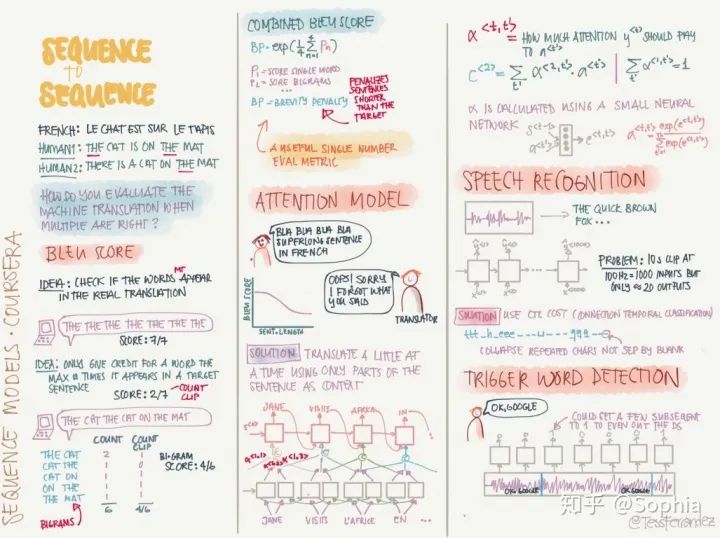 SEQUENCE
to
SEQUENCE
FRENCH: LE CHAT EST SUR LE TAPIS
HUMAN1: THE CAT IS ON THE MAT
HUMAN2: THERE IS A CAT ON THE MAT
HOW DO YOU EVALUATE THE
MACHINE TRANSLATION WHEN
MULTIPLE ARE RIGHT?
BLEU SCORE
IDEA: CHECK IF THE WORDS MT APPEAR
IN THE REAL TRANSLATION
THE THE THE THE THE THE THE
SCORE: 7/7
IDEA: ONLY GIVE CREDIT FOR A WORD THE
MAX # TIMES IT APPEARS IN A TARGET
SENTENCE
SCORE: 2/7
COUNT
CLIP
THE CAT THE CAT ON THE MAT
COUNT COUNT CLIP
THE CAT 2 1
CAT THE 1 0
CAT ON 1 1
ON THE 1 1
THE MAT 1 1
6 4/6
BIGRAM
SCORE: 4/6
BIGRAMS
SEQUENCE MODELS · COURSERA
COMBINED BLEU SCORE
BP · exp(1/4 Σ Pn)
P1 = SCORE SINGLE WORD
P2 = SCORE BIGRAMS
...
BP = BREVITY PENALTY
PENALIZES
SENTENCES
SHORTER
THAN THE
TARGET
A USEFUL SINGLE NUMBER
EVAL METRIC
ATTENTION MODEL
BLA BLA BLA BLA
SUPERLONG SENTENCE
IN FRENCH
BLEU SCORE
SENT. LENGTH
OOPS! SORRY
I FORGOT WHAT
YOU SAID
TRANSLATOR
SOLUTION: TRANSLATE A LITTLE AT
A TIME USING ONLY PARTS OF THE
SENTENCE AS CONTEXT
JANE VISITS AFRICA IN ...
JANE VISITS L'AFRICE EN ...
α<t,t'> = HOW MUCH ATTENTION y<t> SHOULD PAY
TO a<t'>
c<2> = Σ α<2,t'> · a<t'> | Σ α<1,t'> = 1
α IS CALCULATED USING A SMALL NEURAL
NETWORK
s<t-1>
a<t'>
e<t,t'>
α<t,t'> = exp(e<t,t'>) / Σ exp(e<t,t'>)
SPEECH RECOGNITION
THE QUICK BROWN
FOX ...
PROBLEM: 10s CLIP AT
100Hz = 1000 INPUTS BUT
ONLY ≈ 20 OUTPUTS
SOLUTION USE CTC COST (CONNECTION TEMPORAL CLASSIFICATION)
COLLAPSE REPEATED CHARS NOT SEP BY BLANK
TRIGGER WORD DETECTION
OK, GOOGLE
COULD SET A FEW SUBSEQENT
TO 1 TO EVEN OUT THE DS
OK, GOOGLE OK, GOOGLE
知乎 @Sophia
@TessFerrandez